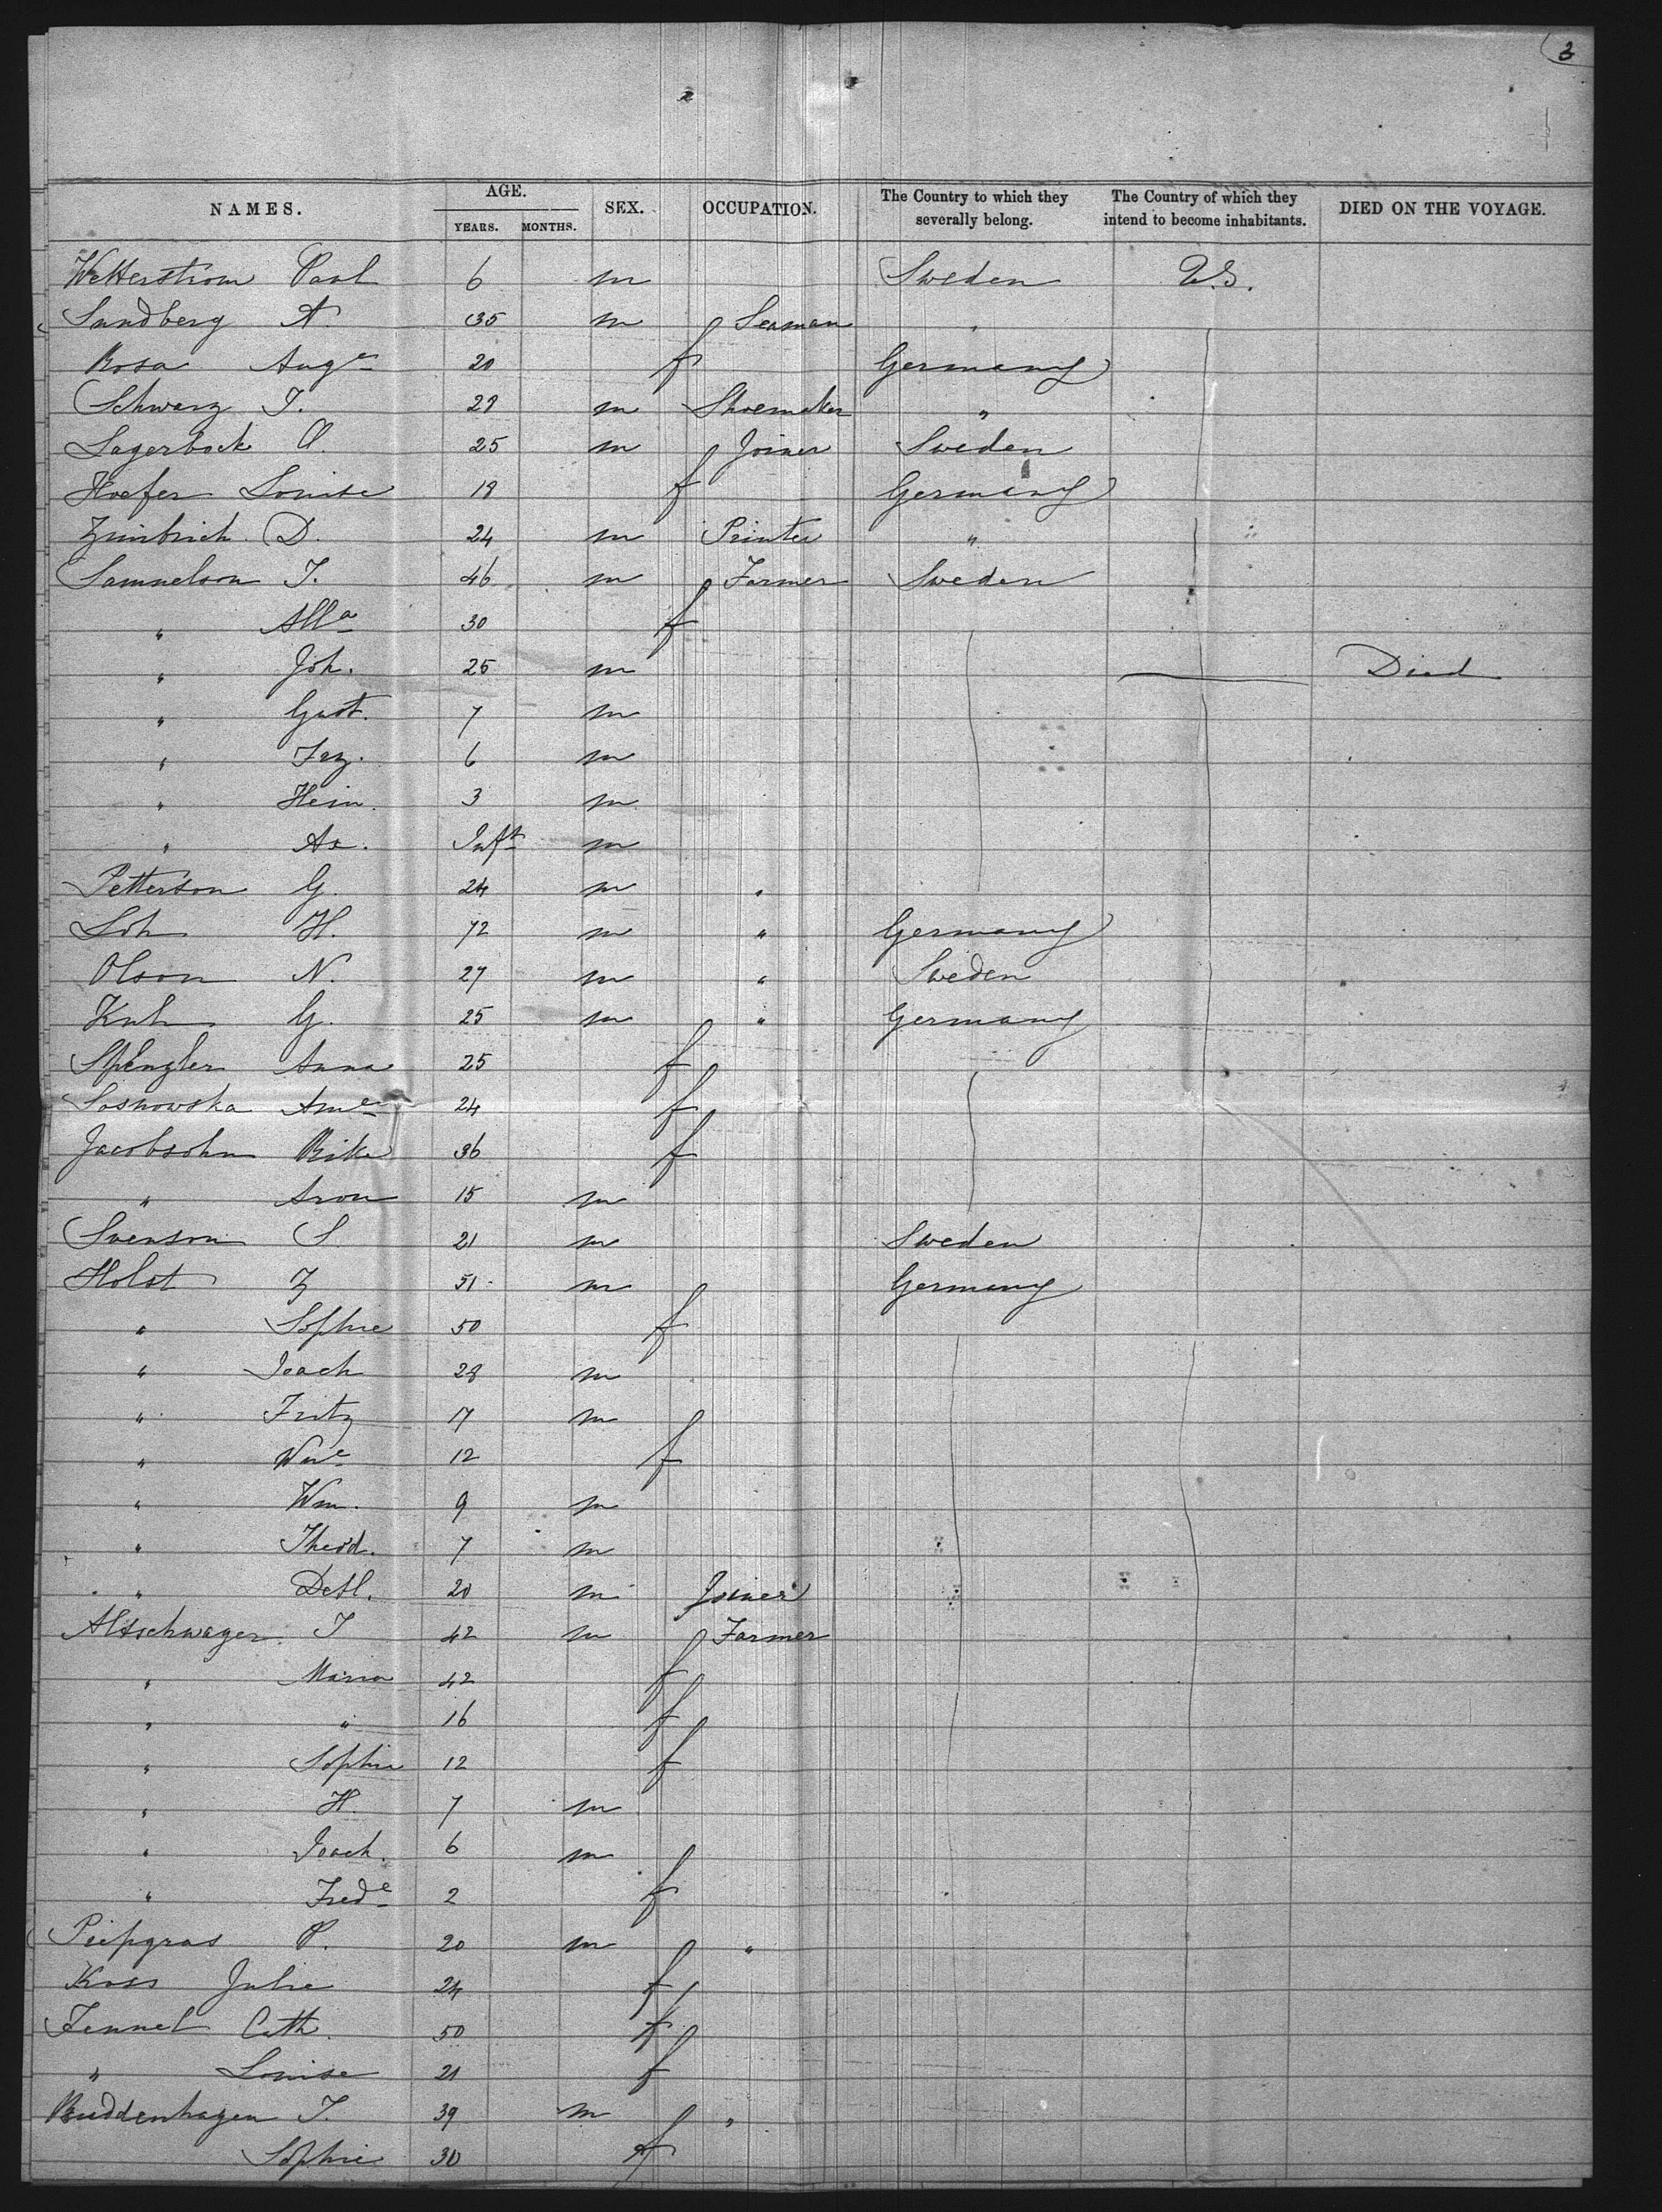 3
NAMES. AGE. YEARS. MONTHS. SEX. OCCUPATION. The Country to which they severally belong. The Country of which they intend to become inhabitants. DIED ON THE VOYAGE.
Wetterstrom Paul 6 m Sweden U.S.
Sandberg A. 35 m Seaman "
Rosa Auge 20 f Germany
Schwarz J. 28 m Shoemaker "
Lagerbock A. 25 m Joiner Sweden
Hoefer Louise 18 f Germany
D. 24 m Printer "
Samuelson J. 46 m Farmer Sweden
" Alla 30 f
" Joh. 25 m Died
" Gust. 7 m
" Frz. 6 m
" Hein. 3 m
" Ax. Inft m
Petterson G. 24 m "
Loh H. 72 m " Germany
Olson N. 27 m " Sweden
Kuh G. 25 m " Germany
Spengler Anna 25 f
Sosnowska Ame 24 f
Jacobsohn Rike 36 f
" Aron 15 m
Svenson S 21 m Sweden
Holst Z 51 m Germany
" Sophie 50 f
" Joach 28 m
" Fritz 17 m
" Wme 12 f
" Wm. 9 m
" Theod. 7 m
" Detl. 20 m Joiner
Altschwager J 42 m Farmer
" Maria 42 f
" " 16 f
" Sophie 12 f
" H. 7 m
" Joach. 6 m
" Frede 2 f
Piepgras P. 20 m "
Koss Julie 24 f
Fennel Cath. 50 f
" Louise 21 f
Buddenhagen J. 39 m "
Sophie 30 f